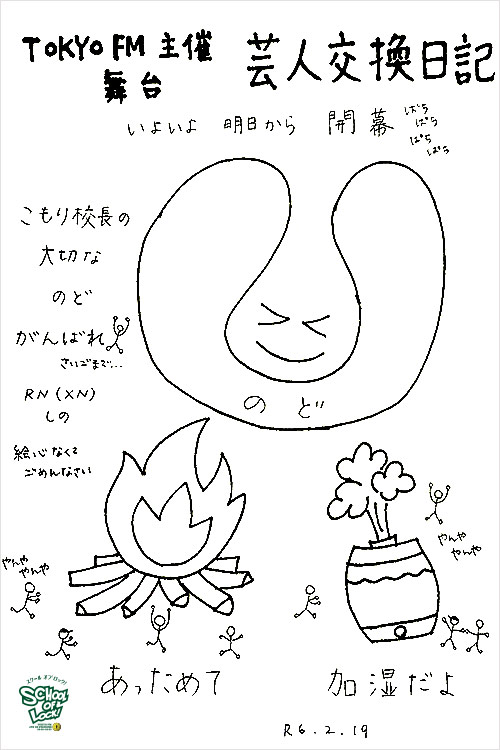 TOKYO FM 主催
舞台
芸人交換日記
いよいよ 明日から 開幕
ぱち
ぱち
ぱち
ぱち
こもり校長の
大切な
のど
がんばれ
さいごまで...
RN(XN)
しの
絵心なくて
ごめんなさい
のど
やんや
やんや
やんや
やんや
あっためて
加湿だよ
スクール オブ ロック!
SCHOOL OF LOCK!
R6.2.19